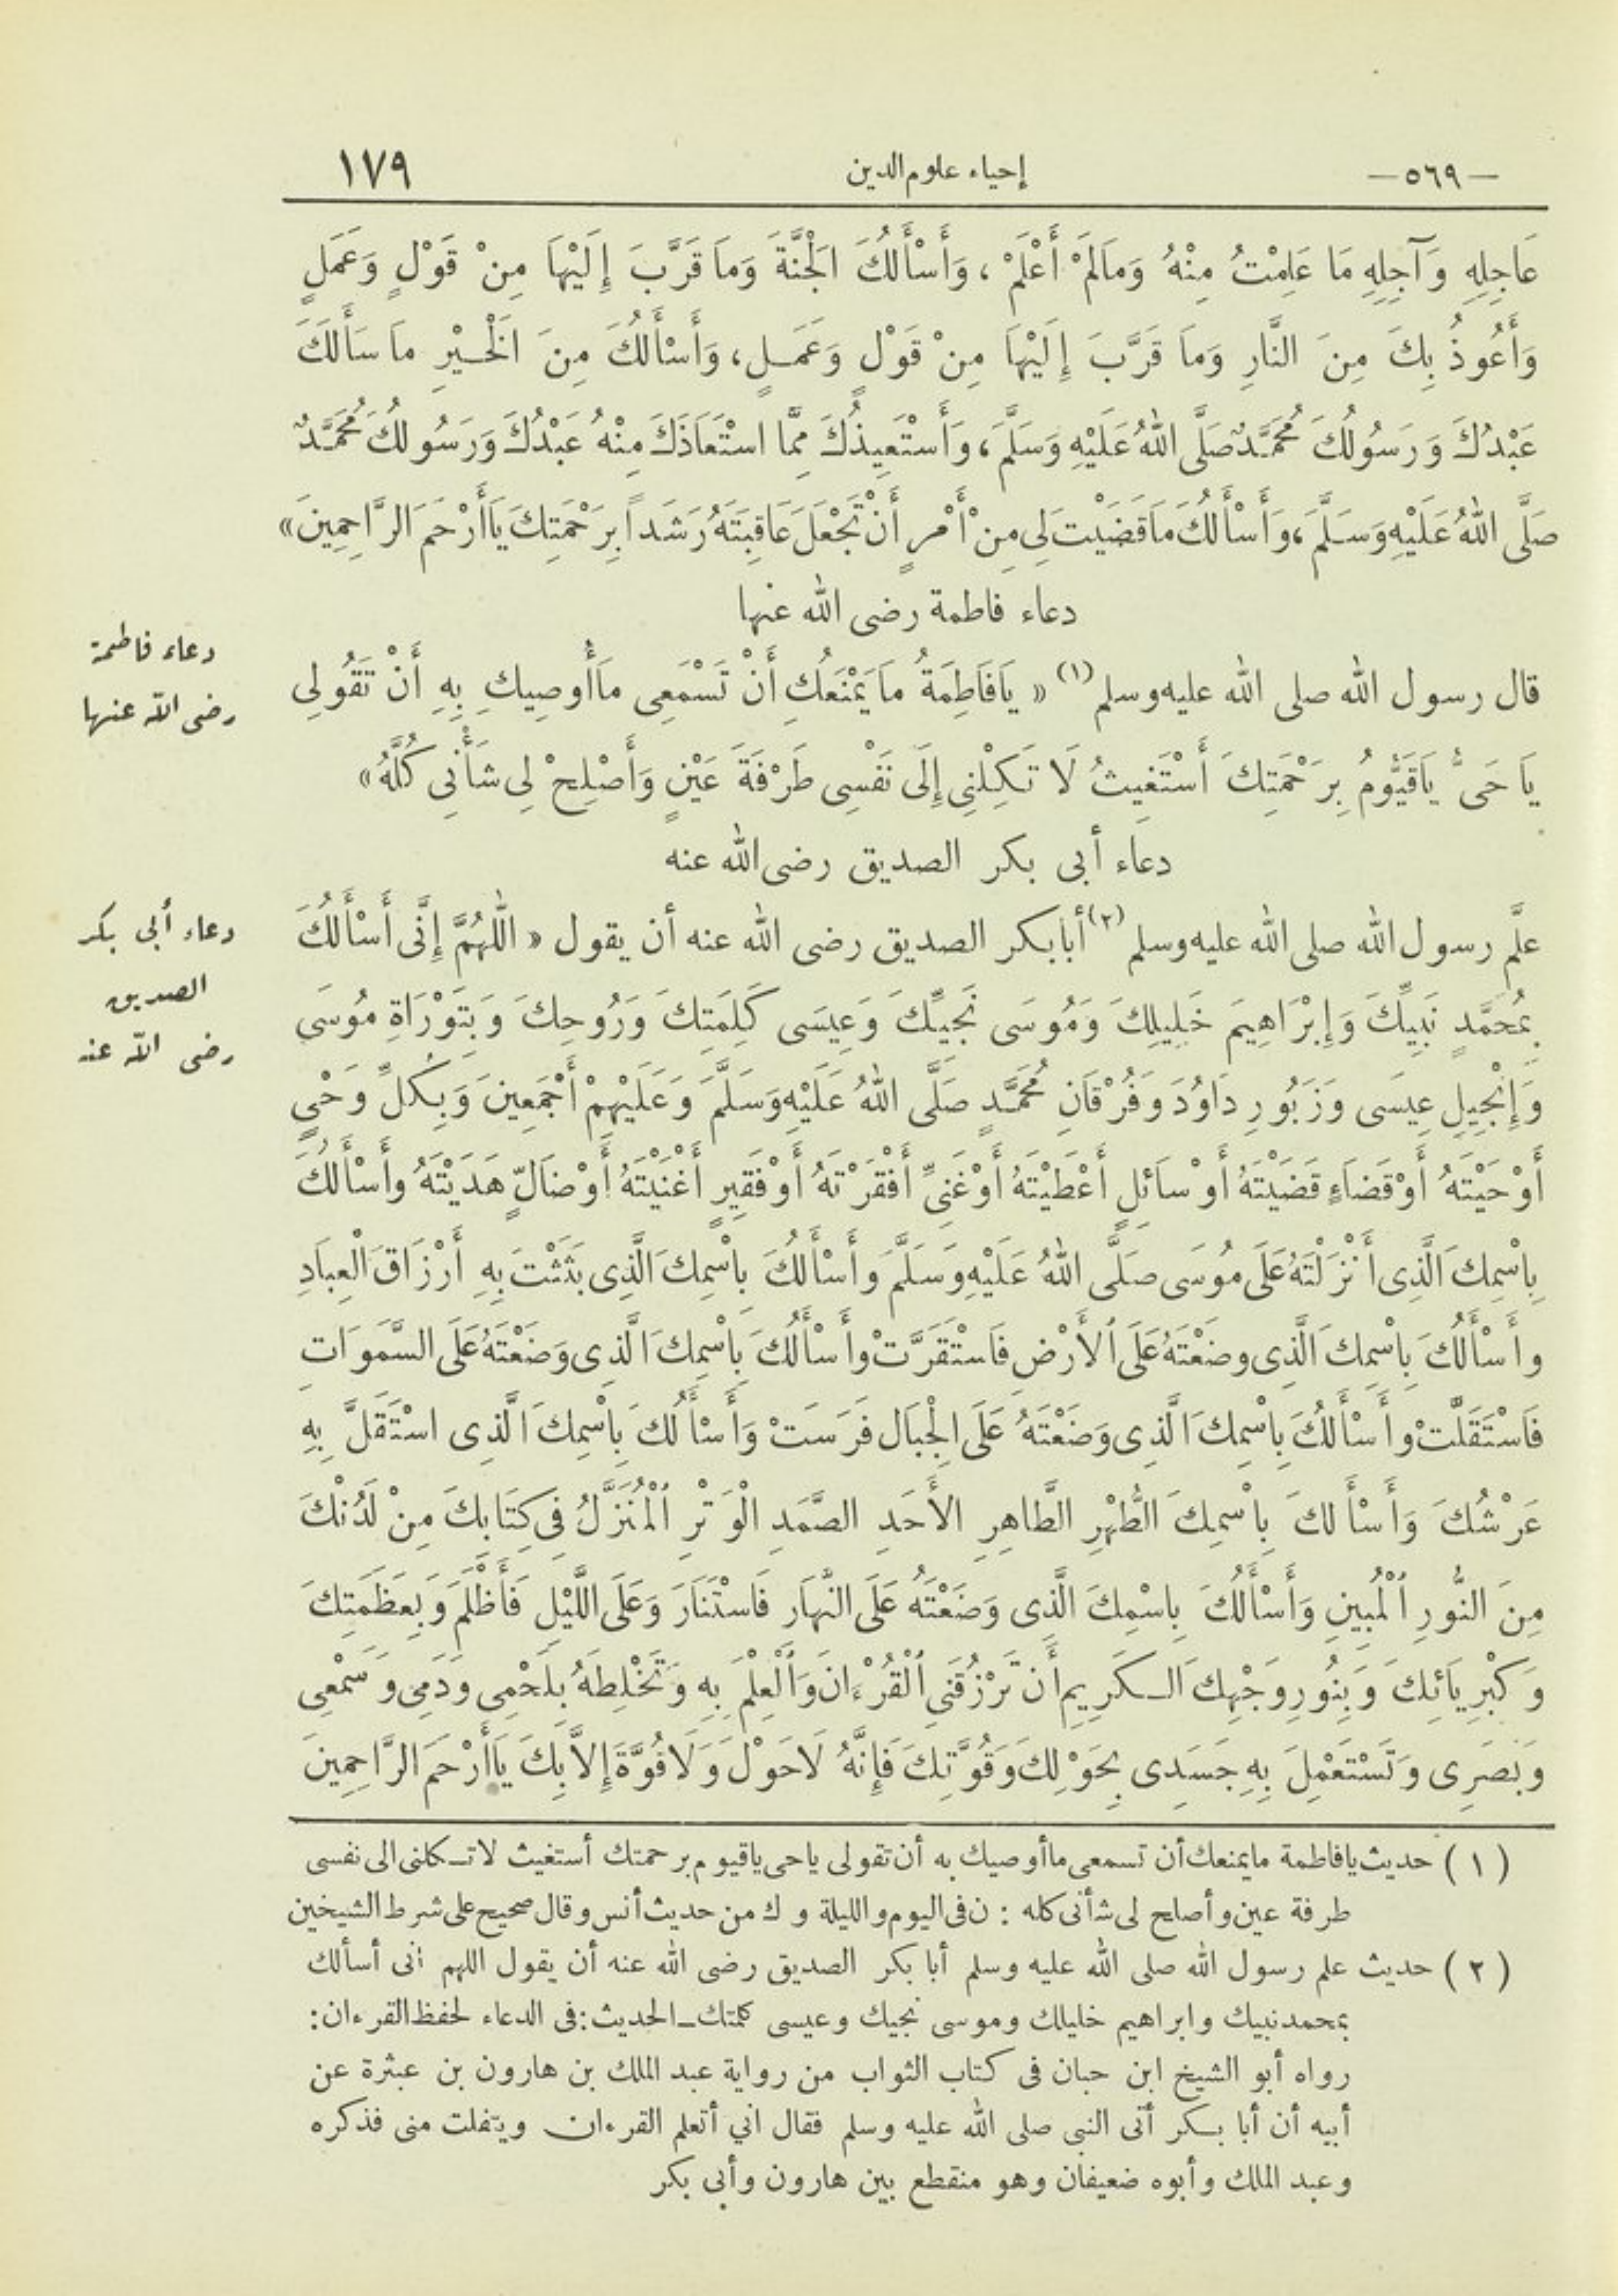 — ٥٦٩ —
إحياء علوم الدين
١٧٩
عَاجِلِهِ وَآجِلِهِ مَا عَلِمْتُ مِنْهُ وَمَالَمْ أَعْلَمْ ، وَأَسْأَلُكَ الْجَنَّةَ وَمَا قَرَّبَ إِلَيْهَا مِنْ قَوْلٍ وَعَمَلٍ
وَأَعُوذُ بِكَ مِنَ النَّارِ وَمَا قَرَّبَ إِلَيْهَا مِنْ قَوْلٍ وَعَمَلٍ ، وَأَسْأَلُكَ مِنَ الْخَيْرِ مَا سَأَلَكَ
عَبْدُكَ وَرَسُولُكَ مُحَمَّدٌ صَلَّى اللهُ عَلَيْهِ وَسَلَّمَ ، وَأَسْتَعِيذُكَ مِمَّا اسْتَعَاذَكَ مِنْهُ عَبْدُكَ وَرَسُولُكَ مُحَمَّدٌ
صَلَّى اللهُ عَلَيْهِ وَسَلَّمَ ، وَأَسْأَلُكَ مَا قَضَيْتَ لِى مِنْ أَمْرٍ أَنْ تَجْعَلَ عَاقِبَتَهُ رَشَداً بِرَحْمَتِكَ يَا أَرْحَمَ الرَّاحِمِينَ »
دعاء فاطمة رضى الله عنها
دعاء فاطمة
رضى الله عنها
قال رسول الله صلى الله عليه وسلم (١) « يَا فَاطِمَةُ مَا يَمْنَعُكِ أَنْ تَسْمَعِى مَا أُوصِيكِ بِهِ أَنْ تَقُولِى
يَا حَىُّ يَا قَيُّومُ بِرَحْمَتِكَ أَسْتَغِيثُ لَا تَكِلْنِى إِلَى نَفْسِى طَرْفَةَ عَيْنٍ وَأَصْلِحْ لِى شَأْنِى كُلَّهُ »
دعاء أبى بكر الصديق رضى الله عنه
دعاء أبى بكر
الصديق
رضى الله عنه
علَّم رسول الله صلى الله عليه وسلم (٢) أبابكر الصديق رضى الله عنه أن يقول « اللَّهُمَّ إِنَّى أَسْأَلُكَ
بِمُحَمَّدٍ نَبِيِّكَ وَإِبْرَاهِيمَ خَلِيلِكَ وَمُوسَى نَجِيِّكَ وَعِيسَى كَلِمَتِكَ وَرُوحِكَ وَبِتَوْرَاةِ مُوسَى
وَإِنْجِيلِ عِيسَى وَزَبُورِ دَاوُدَ وَفُرْقَانِ مُحَمَّدٍ صَلَّى اللهُ عَلَيْهِ وَسَلَّمَ وَعَلَيْهِمْ أَجْمَعِينَ وَبِكُلِّ وَحْىٍ
أَوْحَيْتَهُ أَوْ قَضَاءٍ قَضَيْتَهُ أَوْ سَائلٍ أَعْطَيْتَهُ أَوْ غَنِىٍّ أَفْقَرْتَهُ أَوْ فَقِيرٍ أَغْنَيْتَهُ أَوْ ضَالٍّ هَدَيْتَهُ وأَسْأَلُكَ
بِاسْمِكَ الَّذِى أَنْزَلْتَهُ عَلَى مُوسَى صَلَّى اللهُ عَلَيْهِ وَسَلَّمَ وأَسْأَلُكَ بِاسْمِكَ الَّذِى بَثَثْتَ بِهِ أَرْزَاقَ الْعِبَادِ
وأَسْأَلُكَ بِاسْمِكَ الَّذِى وضَعْتَهُ عَلَى الأَرْضِ فَاسْتَقَرَّتْ وأَسْأَلُكَ بِاسْمِكَ الَّذِى وَضَعْتَهُ عَلَى السَّمَوَاتِ
فَاسْتَقَلَّتْ وأَسْأَلُكَ بِاسْمِكَ الَّذِى وَضَعْتَهُ عَلَى الْجِبَالِ فَرَسَتْ وَأَسْأَلُكَ بِاسْمِكَ الَّذِى اسْتَقَلَّ بِهِ
عَرْشُكَ وَأَسْأَلُكَ بِاسْمِكَ الطُّهْرِ الطَّاهِرِ الأَحَدِ الصَّمَدِ الْوَتْرِ الْمُنَزَّلُ فِى كِتَابِكَ مِنْ لَدُنْكَ
مِنَ النُّورِ الْمُبِينِ وَأَسْأَلُكَ بِاسْمِكَ الَّذِى وَضَعْتَهُ عَلَى النَّهَارِ فَاسْتَنَارَ وَعَلَى اللَّيْلِ فَأَظْلَمَ وَبِعَظَمَتِكَ
وَكِبْرِيَائِكَ وَبِنُورِ وَجْهِكَ الْكَرِيمِ أَن تَرْزُقَنِى الْقُرْءَانَ وَالْعِلْمَ بِهِ وَتَخْلِطَهُ بِلَحْمِى وَدَمِى وَسَمْعِى
وَبَصَرِى وَتَسْتَعْمِلَ بِهِ جَسَدِى بِحَوْلِكَ وَقُوَّتِكَ فَإِنَّهُ لَا حَوْلَ وَلَا قُوَّةَ إِلاَّ بِكَ يَا أَرْحَمَ الرَّاحِمِينَ
( ١ ) حديث يافاطمة مايمنعك أن تسمعى ماأوصيك به أن تقولى ياحى ياقيوم برحمتك أستغيث لا تكلنى الى نفسى
طرفة عين وأصلح لى شأنى كله : ن فى اليوم والليلة و ك من حديث أنس وقال صحيح على شرط الشيخين
( ٢ ) حديث علم رسول الله صلى الله عليه وسلم أبا بكر الصديق رضى الله عنه أن يقول اللهم انى أسألك
بمحمد نبيك وابراهيم خليلك وموسى نجيك وعيسى كلمتك ـ الحديث : فى الدعاء لحفظ القرءان :
رواه أبو الشيخ ابن حبان فى كتاب الثواب من رواية عبد الملك بن هارون بن عبثرة عن
أبيه أن أبا بكر أتى النبى صلى الله عليه وسلم فقال انى أتعلم القرءان ويتفلت منى فذكره
وعبد الملك وأبوه ضعيفان وهو منقطع بين هارون وأبى بكر